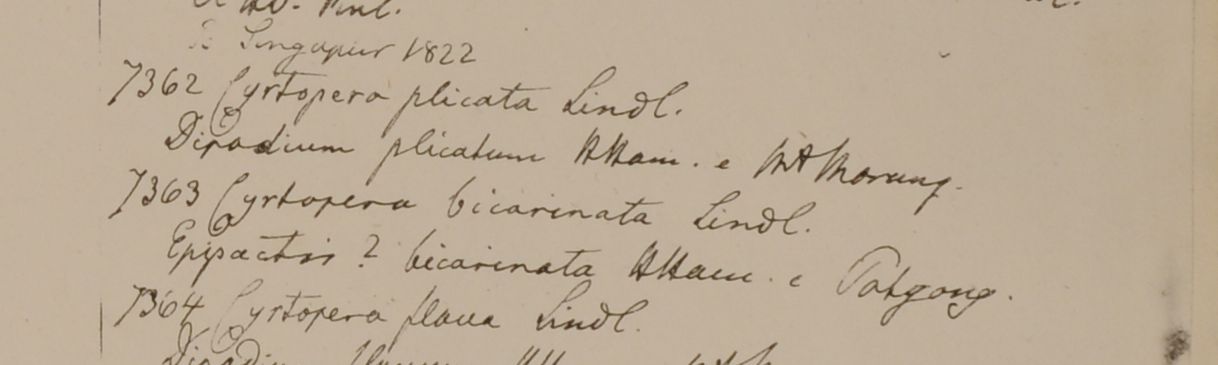 Singapur 1822
7362 Cyrtopera plicata Lindl.
Dipodium plicatum HHam. e Morung.
7363 Cyrtopera bicarinata Lindl.
Epipactis? bicarinata HHam. e Patgong.
7364 Cyrtopera flava Lindl.